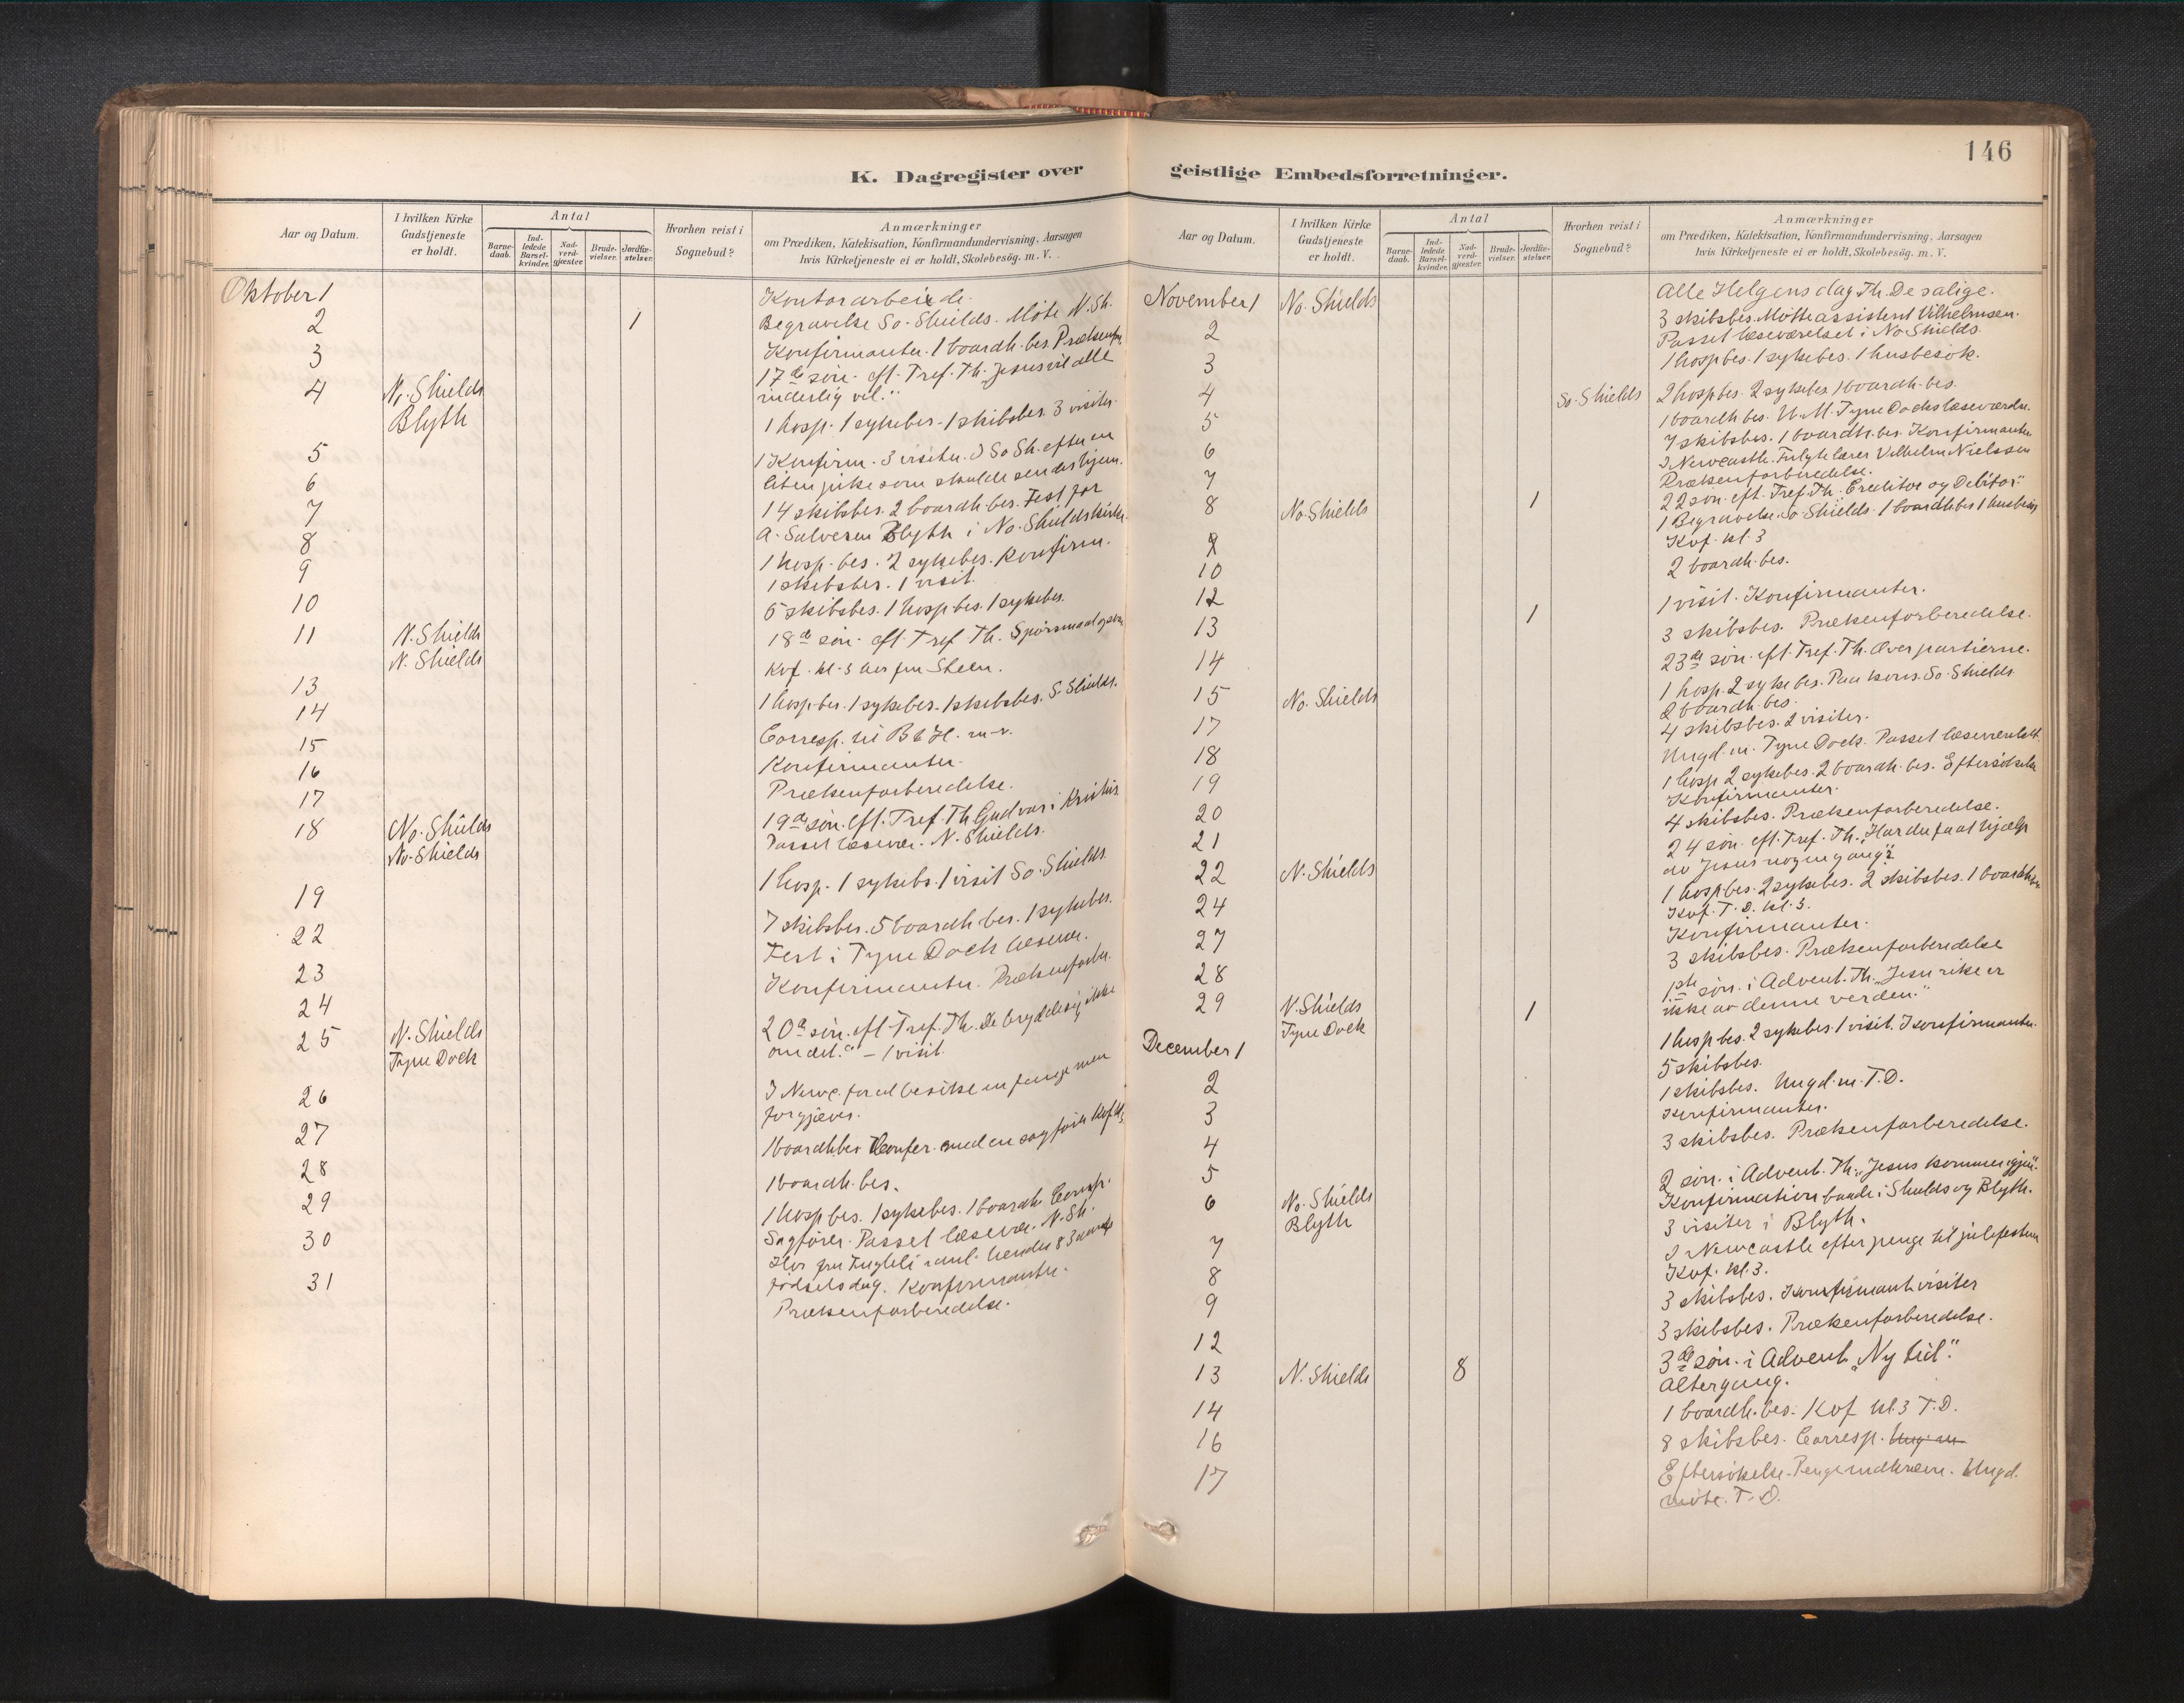 146
K. Dagregister over geistlige Embedsforretninger.
Aar og Datum.
I hvilken Kirke Gudstjeneste er holdt.
Antal
Barne-daab.
Ind-ledede Barsel-kvinder.
Nad-verd-gjæster.
Brude-vielser.
Jordfæ-stelser.
Hvorhen reist i Sognebud?
Anmærkninger
om Prædiken, Katekisation, Konfirmandundervisning, Aarsagen
hvis Kirketjeneste ei er holdt, Skolebesög. m. V.
Oktober 1
Kontorarbeide.
2
1
Begravelse So. Shields. Möte N. Sh.
3
Konfirmanter. 1 boardh. bes.
4
N. Shields
17de søn. eft. Tref. Th. "Jesus vil alle
inderlig vel."
Blyth
1 hosp. 1 sykebes. 1 skibsbes. 3 visiter.
5
1 Konfirm. 3 visiter. I So Sh. efter en
6
liten pike som skulde sendes hjem.
7
14 skibsbes. 2 boardh. bes. Fest for
8
A. Salvesen Blyth i No. Shields kirke.
9
1 hosp. bes. 2 sykebes. Konfirm.
1 skibsbes. 1 visit.
10
6 skibsbes. 1 hosp bes. 1 sykebes.
11
N. Shields
18de søn. eft. Tref. Th.
N. Shields
Kvf. kl. 3 hos fru Steen.
13
1 hosp. bes. 1 sykebes. 1 skibsbes. S. Shields.
14
15
Corresp. til B & H. m. v.
16
Konfirmanter.
17
Prækenforberedelse.
18
No. Shields
19de søn. eft. Tref. Th. Gud var i Kristus
No. Shields
Passet læsevær. N. Shields.
19
1 hosp. 1 sykebs. 1 visit So. Shields
22
7 skibsbes. 5 boardh. bes. 1 sykebes.
Fest i Tyne Dock læsevær.
23
Konfirmanter. Prækenforber.
24
25
N. Shields
20de søn. eft. Tref. Th. De brydde sig ikke
Tyne Dock
om det." - 1 visit.
26
I Newc. for at besöke en fange men
forgjæves.
27
1 boardh. bes. Confer. med en sagförer Kvf. kl. 3
28
1 boardh. bes.
29
1 hosp bes. 1 sykebes. 1 boardh. Corresp.
30
Sagförer. Passet læsevær. N. Sh.
Hos fru
31
födselsdag. Konfirmanter.
Prækenforberedelse.
Aar og Datum.
I hvilken Kirke Gudstjeneste er holdt.
Antal
Barne-daab.
Ind-ledede Barsel-kvinder.
Nad-verd-gjæster.
Brude-vielser.
Jordfæ-stelser.
Hvorhen reist i Sognebud?
Anmærkninger
om Prædiken, Katekisation, Konfirmandundervisning, Aarsagen
hvis Kirketjeneste ei er holdt, Skolebesög. m. V.
November 1
No. Shields
Alle Helgens dag Th. De salige.
3 skibsbes. Mötte assistent Vilhelmsen.
2
Passet læseværelset i No Shields.
1 hosp bes. 1 sykebes. 1 husbesök.
3
4
So. Shields
2 hosp bes. 2 sykebes. 1 boardh. bes.
1 boardh bes. U. M. Tyne Docks læseværelse.
5
7 skibsbes. 1 boardh. bes. Konfirmanter
6
I Newcastle. Fulgte lærer Vilhelm Nielssen
7
Prækenforberedelse.
22 søn. eft. Tref. Th. "Creditor og Debitor."
8
No. Shields
1
1 Begravelse. So. Shields. 1 boardh bes 1 husbesøg
9
Kvf. kl. 3
10
2 boardh. bes.
12
1 visit. Konfirmanter.
13
1
3 skibsbes. Prækenforberedelse.
14
23de søn. eft. Tref. Th.
15
No. Shields
1 hosp. 2 sykebes. Paa kons. So. Shields.
2 boardh. bes.
17
4 skibsbes. 2 visiter.
Ungd. m. Tyne Dock. Passet
18
1 hosp 2 sykebes. 2 boardh. bes. Eftersökelse
19
Konfirmanter.
20
4 skibsbes. Prækenforberedelse.
21
24 søn. eft. Tref. Th. "Har du faat hjælp
av Jesus nogen gang"?
22
N. Shields
1 hosp. bes. 2 sykebes. 2 skibsbes. 1 boardh bes
24
Kvf. T. D. kl. 3.
Konfirmanter.
27
3 skibsbes. Prækenforberedelse
28
1ste søn. i Advent. Th. "Jesu rike er
29
N. Shields
1
ikke av denne verden."
Tyne Dock
1 hosp bes. 2 sykebes. 1 visit. Konfirmanter.
December 1
5 skibsbes.
2
1 skibsbes. Ungd. m. T. D.
3
Konfirmanter.
4
3 skibsbes. Prækenforberedelse.
5
2 søn. i Advent. Th. "Jesus kommer igjen".
6
No. Shields
Konfirmation baade i Shields og Blyth.
Blyth
3 visiter i Blyth.
7
I Newcastle efter penge til julefesten
Kvf. kl. 3.
8
3 skibsbes. Konfirmantvisiter
9
3 skibsbes. Prækenforberedelse.
12
3de søn. i Advent. "Ny tid".
13
N. Shields
8
Altergang.
14
1 boardh. bes. Kvf kl. 3 T. D.
16
8 skibsbes. Corresp.
17
Eftersökelse. Ungd.
möte. T. D.